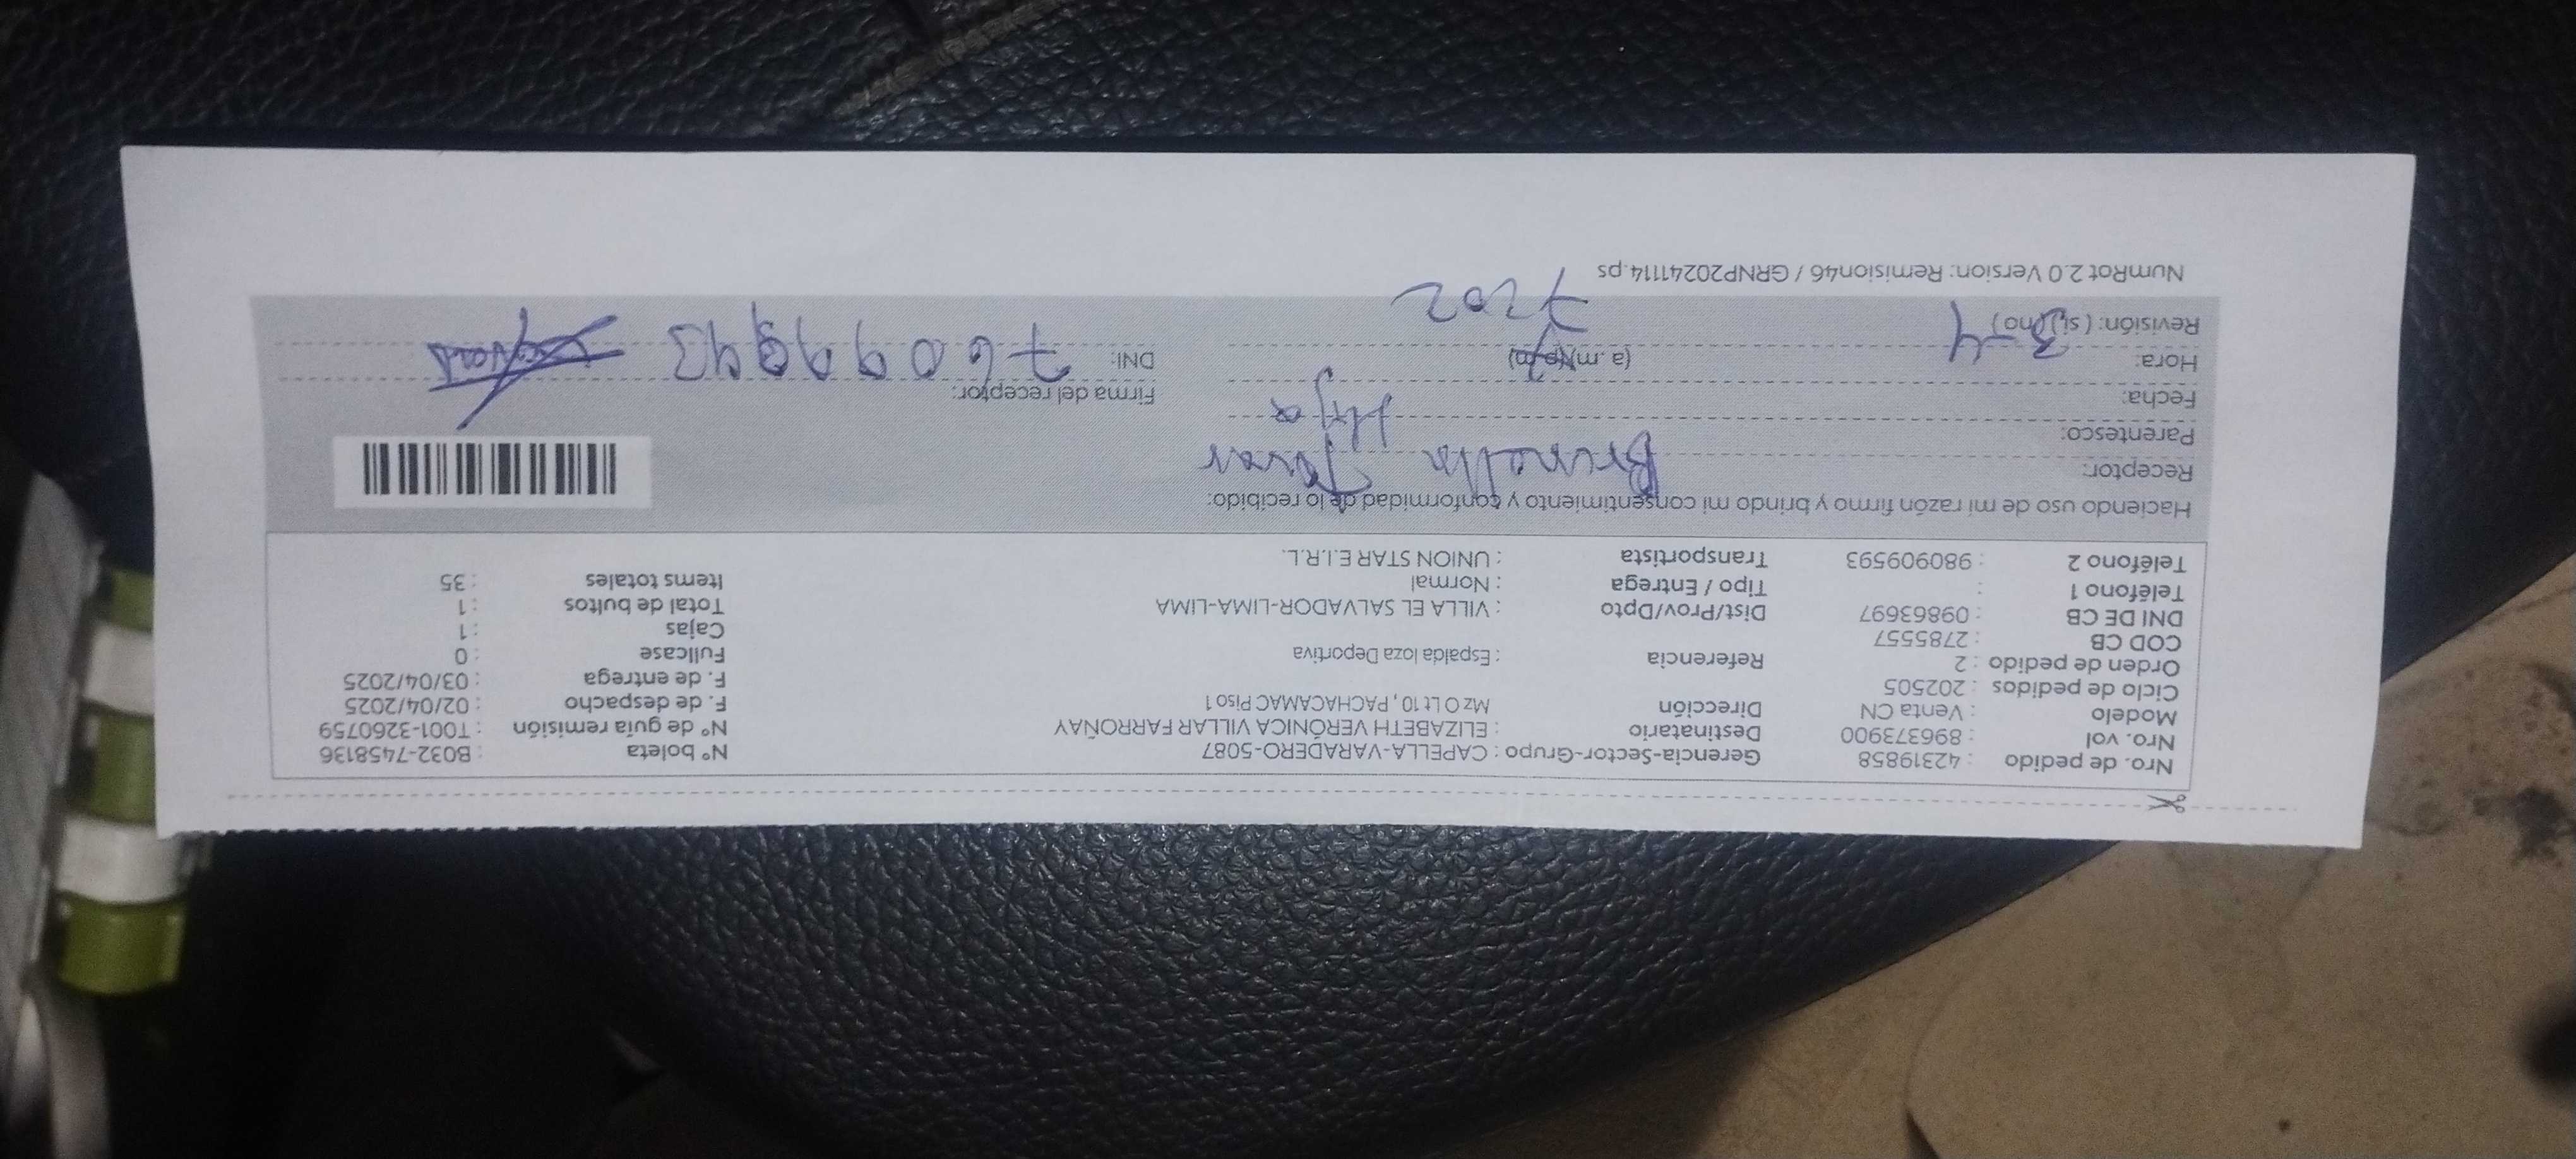 Nro. de pedido : 42319858 Gerencia-Sector-Grupo : CAPELLA-VARADERO-5087 N° boleta : B032-7458136
Nro. vol : 896373900 Destinatario : ELIZABETH VERÓNICA VILLAR FARROÑAY N° de guia remisión : T001-3260759
Modelo : Venta CN Dirección Mz O Lt 10 , PACHACAMAC Piso 1 F. de despacho : 02/04/2025
Ciclo de pedidos : 202505 F. de entrega : 03/04/2025
Orden de pedido : 2 Referencia : Espalda loza Deportiva Fullcase : 0
COD CB : 2785557 Cajas : 1
DNI DE CB : 09863697 Dist/Prov/Dpto : VILLA EL SALVADOR-LIMA-LIMA Total de bultos : 1
Teléfono 1 : Tipo / Entrega : Normal Items totales : 35
Teléfono 2 : 980909593 Transportista : UNION STAR E.I.R.L.
Haciendo uso de mi razón firmo y brindo mi consentimiento y conformidad de lo recibido:
Receptor: Brunella
Parentesco: Hija
Fecha: Firma del receptor:
Hora: (a. m)(p.m) DNI:
Revisión: ( si)(no) 3-4
NumRot 2.0 Version: Remision46 / GRNP20241114.ps